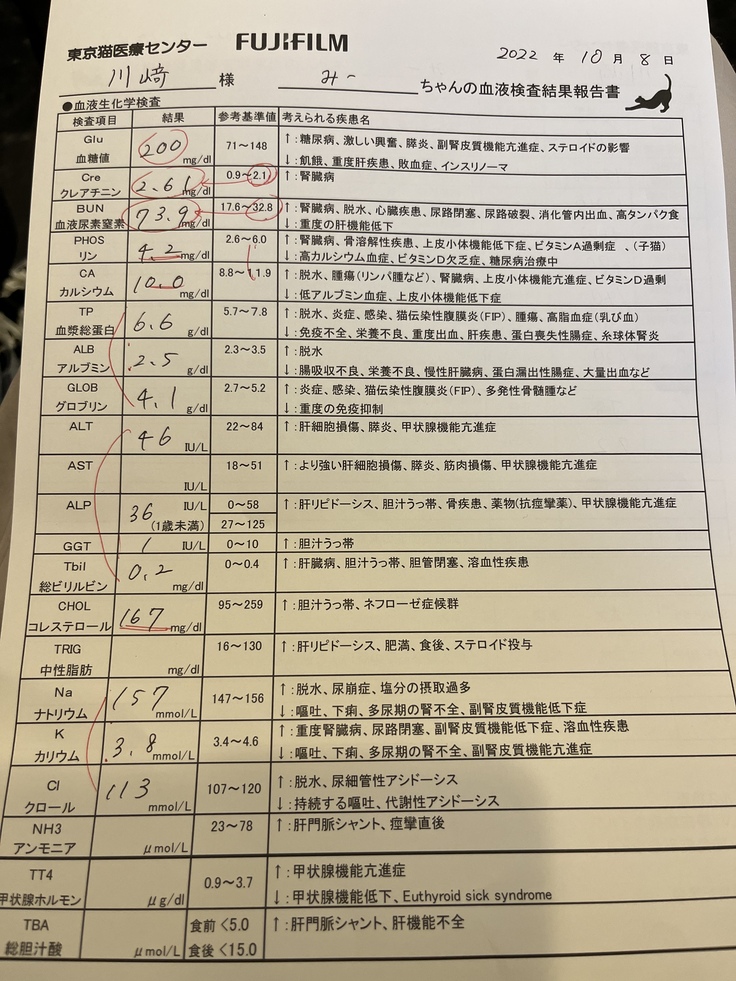 東京猫医療センター FUJIFILM
2022 年 10 月 8 日
川崎 様 みー ちゃんの血液検査結果報告書
●血液生化学検査
検査項目 結果 参考基準値 考えられる疾患名
Glu 血糖値 200 mg/dl 71～148 ↑:糖尿病、激しい興奮、膵炎、副腎皮質機能亢進症、ステロイドの影響
↓:飢餓、重度肝疾患、敗血症、インスリノーマ
Cre クレアチニン 2.61 mg/dl 0.9～2.1 ↑:腎臓病
BUN 血液尿素窒素 73.9 mg/dl 17.6～32.8 ↑:腎臓病、脱水、心臓疾患、尿路閉塞、尿路破裂、消化管内出血、高タンパク食
↓:重度の肝機能低下
PHOS リン 4.2 mg/dl 2.6～6.0 ↑:腎臓病、骨溶解性疾患、上皮小体機能低下症、ビタミンA過剰症 、(子猫)
↓:高カルシウム血症、ビタミンD欠乏症、糖尿病治療中
CA カルシウム 10.0 mg/dl 8.8～11.9 ↑:脱水、腫瘍(リンパ腫など)、腎臓病、上皮小体機能亢進症、ビタミンD過剰
↓:低アルブミン血症、上皮小体機能低下症
TP 血漿総蛋白 6.6 g/dl 5.7～7.8 ↑:脱水、炎症、感染、猫伝染性腹膜炎(FIP)、腫瘍、高脂血症(乳び血)
↓:免疫不全、栄養不良、重度出血、肝疾患、蛋白喪失性腸症、糸球体腎炎
ALB アルブミン 2.5 g/dl 2.3～3.5 ↑:脱水
↓:腸吸収不良、栄養不良、慢性肝臓病、蛋白漏出性腸症、大量出血など
GLOB グロブリン 4.1 g/dl 2.7～5.2 ↑:炎症、感染、猫伝染性腹膜炎(FIP)、多発性骨髄腫など
↓:重度の免疫抑制
ALT 46 IU/L 22～84 ↑:肝細胞損傷、膵炎、甲状腺機能亢進症
AST IU/L 18～51 ↑:より強い肝細胞損傷、膵炎、筋肉損傷、甲状腺機能亢進症
ALP 36 IU/L 0～58 ↑:肝リピドーシス、胆汁うっ帯、骨疾患、薬物(抗痙攣薬)、甲状腺機能亢進症
(1歳未満) 27～125
GGT 1 IU/L 0～10 ↑:胆汁うっ帯
Tbil 総ビリルビン 0.2 mg/dl 0～0.4 ↑:肝臓病、胆汁うっ帯、胆管閉塞、溶血性疾患
CHOL コレステロール 167 mg/dl 95～259 ↑:胆汁うっ帯、ネフローゼ症候群
TRIG 中性脂肪 mg/dl 16～130 ↑:肝リピドーシス、肥満、食後、ステロイド投与
Na ナトリウム 157 mmol/L 147～156 ↑:脱水、尿崩症、塩分の摂取過多
↓:嘔吐、下痢、多尿期の腎不全、副腎皮質機能低下症
K カリウム 3.8 mmol/L 3.4～4.6 ↑:重度腎臓病、尿路閉塞、副腎皮質機能低下症、溶血性疾患
↓:嘔吐、下痢、多尿期の腎不全、副腎皮質機能亢進症
Cl クロール 113 mmol/L 107～120 ↑:脱水、尿細管性アシドーシス
↓:持続する嘔吐、代謝性アシドーシス
NH3 アンモニア μmol/L 23～78 ↑:肝門脈シャント、痙攣直後
TT4 甲状腺ホルモン μg/dl 0.9～3.7 ↑:甲状腺機能亢進症
↓:甲状腺機能低下、Euthyroid sick syndrome
TBA 総胆汁酸 μmol/L 食前<5.0 ↑:肝門脈シャント、肝機能不全
食後<15.0